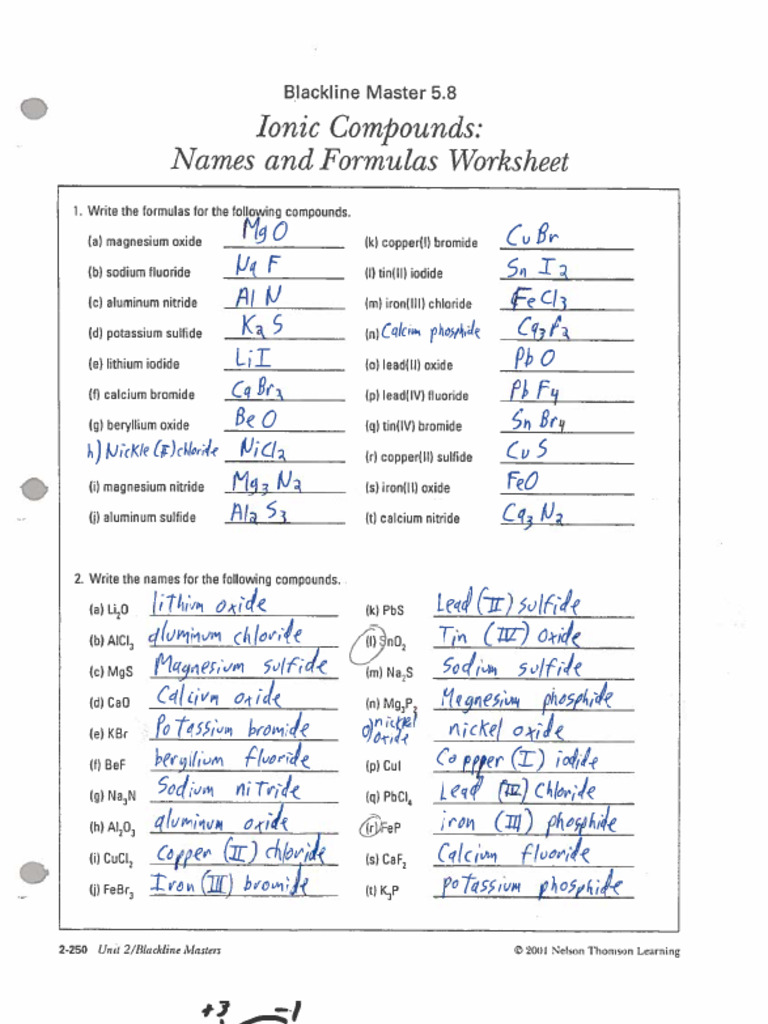 Blackline Master 5.8
Ionic Compounds:
Names and Formulas Worksheet
1. Write the formulas for the following compounds.
(a) magnesium oxide MgO
(b) sodium fluoride NaF
(c) aluminum nitride AlN
(d) potassium sulfide K2S
(e) lithium iodide LiI
(f) calcium bromide CaBr2
(g) beryllium oxide BeO
h) Nickle (II) chloride NiCl2
(i) magnesium nitride Mg3N2
(j) aluminum sulfide Al2S3
(k) copper(I) bromide CuBr
(l) tin(II) iodide SnI2
(m) iron(III) chloride FeCl3
(n) Calcium phosphide Ca3P2
(o) lead(II) oxide PbO
(p) lead(IV) fluoride PbF4
(q) tin(IV) bromide SnBr4
(r) copper(II) sulfide CuS
(s) iron(II) oxide FeO
(t) calcium nitride Ca3N2
2. Write the names for the following compounds.
(a) Li2O lithium oxide
(b) AlCl3 aluminum chloride
(c) MgS Magnesium sulfide
(d) CaO Calcium oxide
(e) KBr Potassium bromide
(f) BeF beryllium fluoride
(g) Na3N Sodium nitride
(h) Al2O3 aluminum oxide
(i) CuCl2 copper (II) chloride
(j) FeBr3 Iron (III) bromide
(k) PbS Lead (II) sulfide
(l) SnO2 Tin (IV) oxide
(m) Na2S Sodium sulfide
(n) Mg3P2 Magnesium phosphide
o) nickel oxide nickel oxide
(p) CuI Coppper (I) iodide
(q) PbCl4 Lead (IV) Chloride
(r) FeP iron (III) phosphide
(s) CaF2 Calcium fluoride
(t) K3P potassium phosphide
2-250 Unit 2/Blackline Masters
© 2001 Nelson Thomson Learning
+3 -1